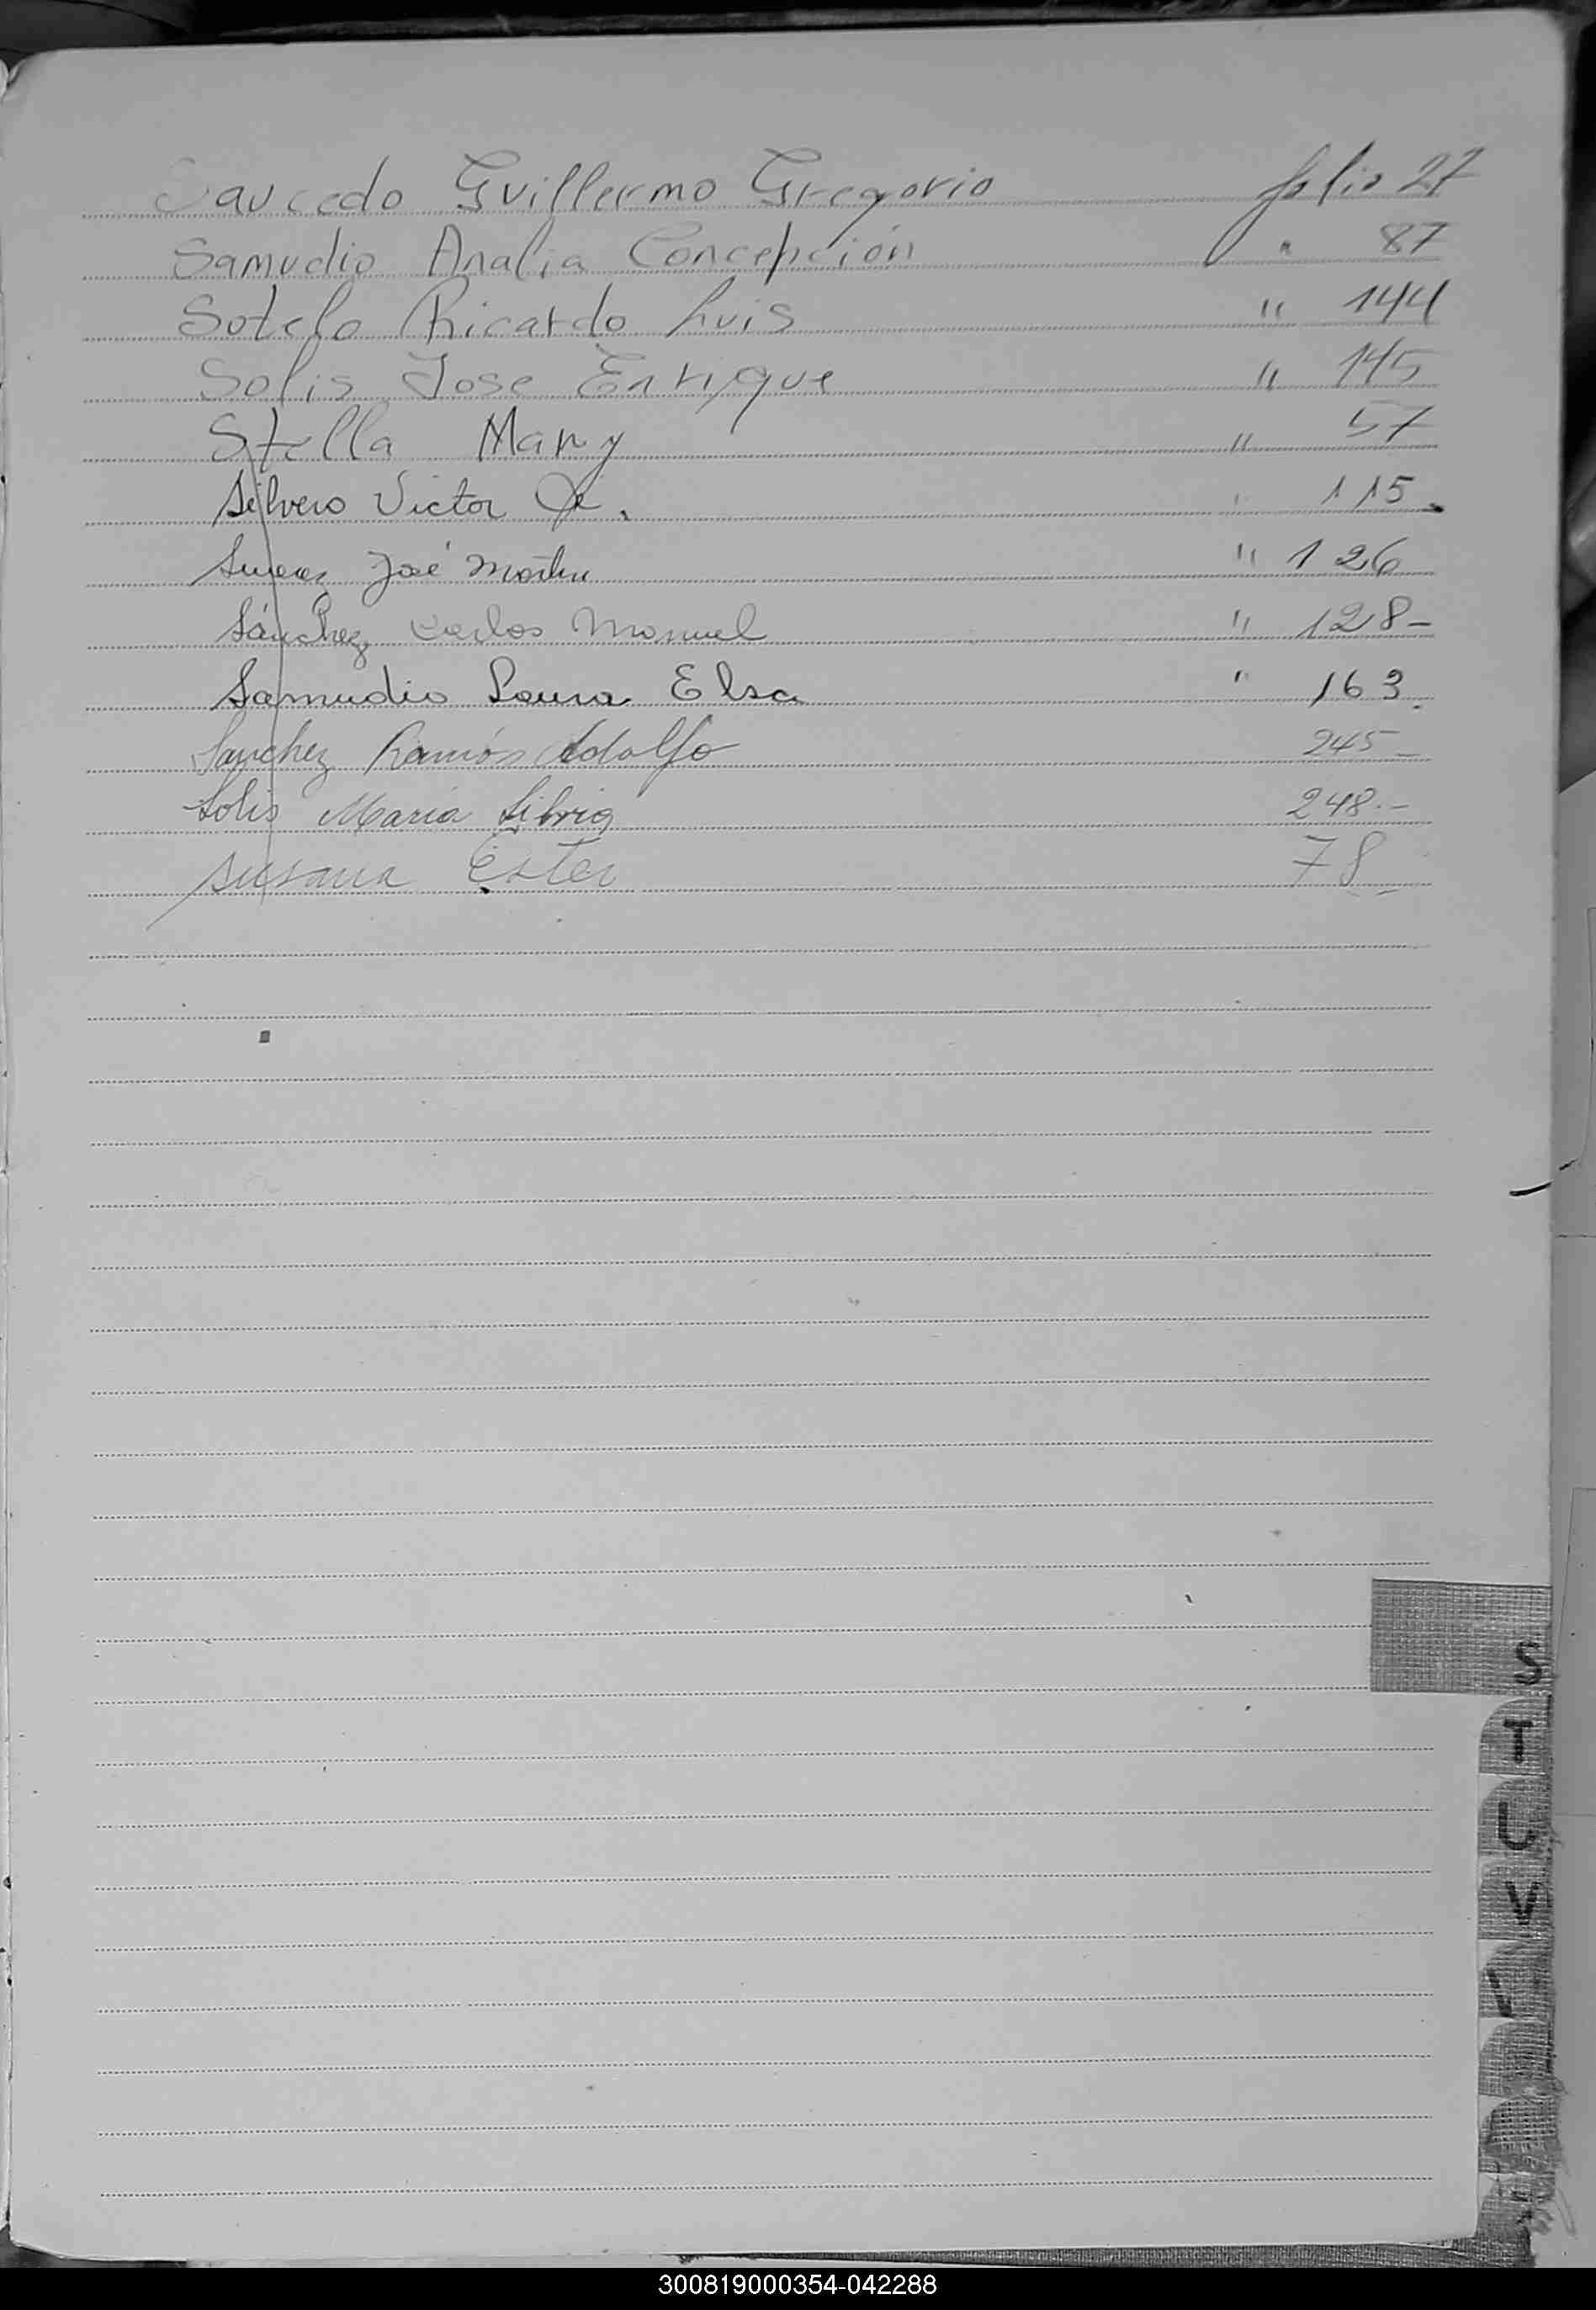 Saucedo Guillermo Gregorio folio 27
Samudio Analia Concepción " 87
Sotelo Ricardo Luis " 144
Solis Jose Enrique " 145
Stella Mary " 57
Silvero Victor " 115.
José Martin " 126
Sánchez Carlos Manuel " 128-
Samudio Laura Elsa " 163.
Sanchez Ramón Adolfo 245-
Solis Maria Silvia 248.-
Susana Ester 78-
S
T
U
V
300819000354-042288